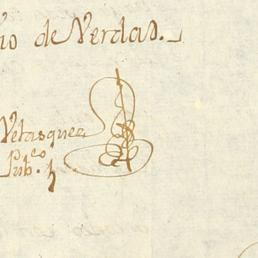 io de Verdad.
Velasquez
Pub.co